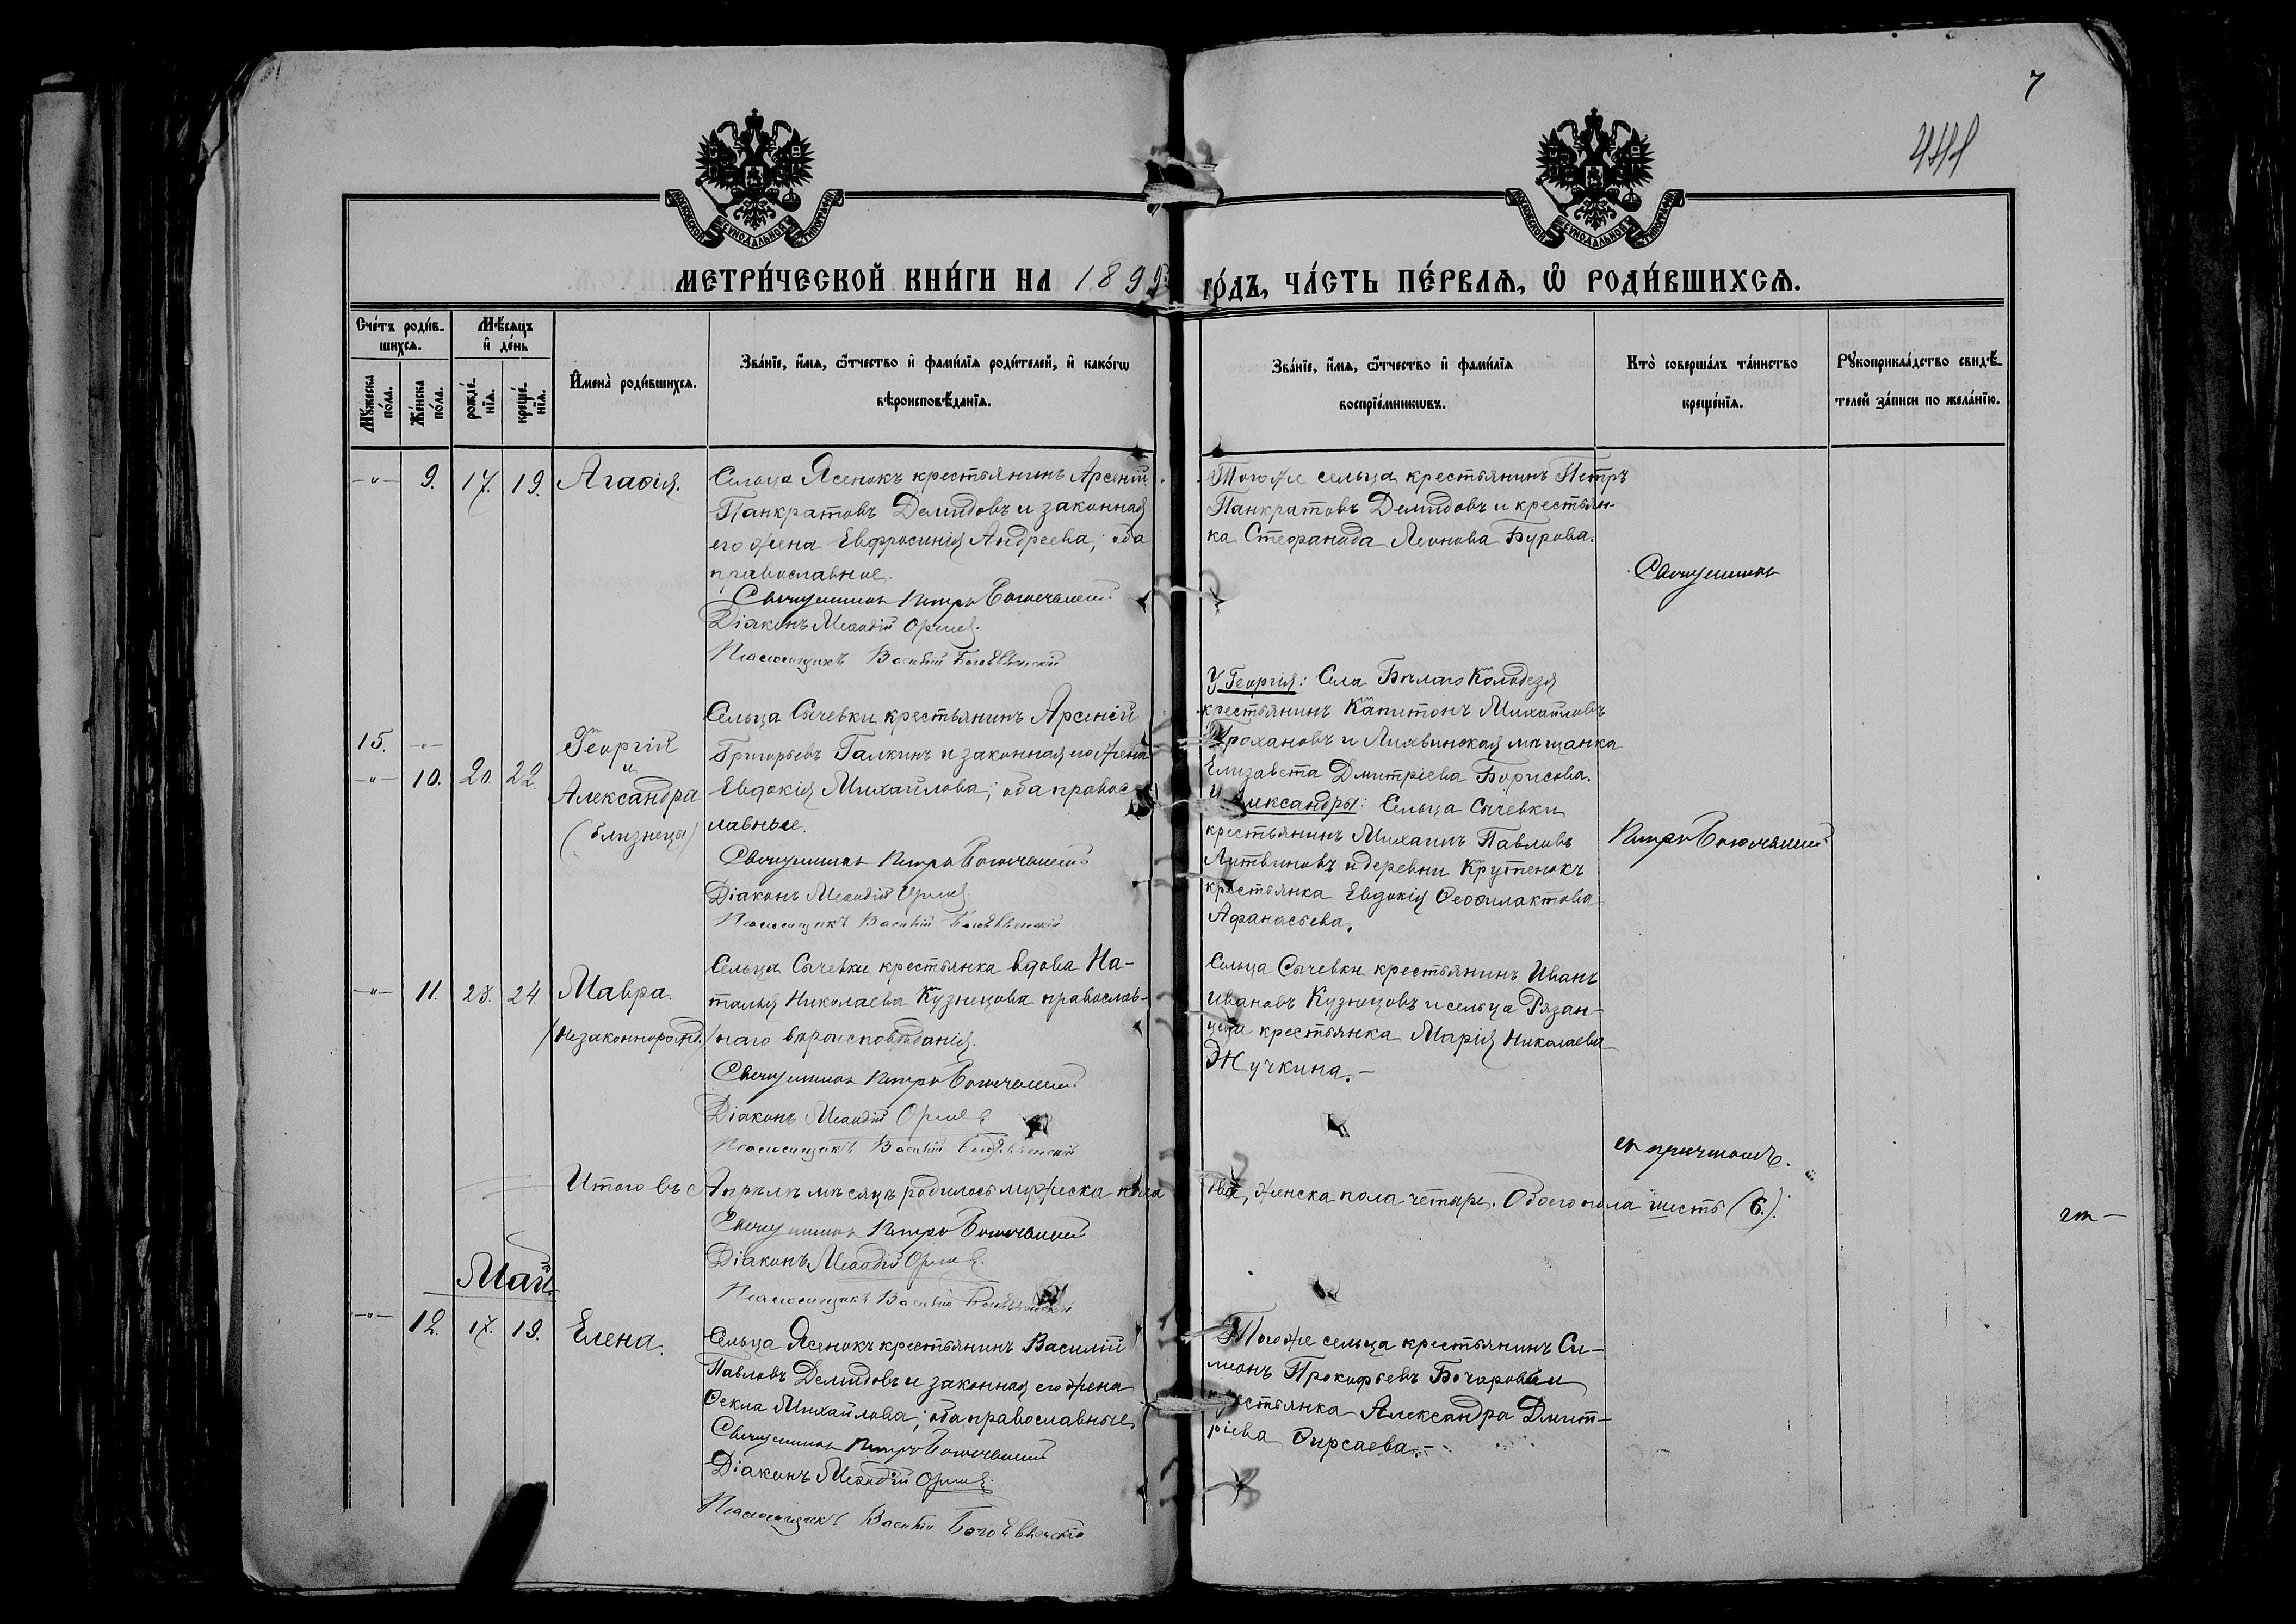 7
МОСКОВСКОЙ СѴНОДАЛЬНОЙ ТИПОГРАФІИ
МОСКОВСКОЙ СѴНОДАЛЬНОЙ ТИПОГРАФІИ
МЕТРИ́ЧЕСКОЙ КНИ́ГИ НА 1899 ГО́ДЪ, ЧА́СТЬ ПЕ́РВАѦ, Ѡ҆ РОДИ́ВШИХСѦ.
Сче́тъ роди́в-
шихсѧ.
Мꙋ́жеска по́ла.
Же́нска по́ла.
Мѣ́сѧцъ
и҆ де́нь
рожде́-
нїѧ.
креще́-
нїѧ.
И҆мена̀ роди́вшихсѧ.
Зва́нїе, и҆́мѧ, ѻ҆́тчество и҆ фами́лїѧ роди́телей, и҆ како́гѡ
вѣроисповѣ́данїѧ.
Зва́нїе, и҆́мѧ, ѻ҆́тчество и҆ фами́лїѧ
воспрїе́мникѡвъ.
Кто̀ соверша́лъ та́инство
креще́нїѧ.
Рꙋкоприкла́дство свидѣ́-
телей за́писи по жела́нїю.
-„- 9. 17. 19. Агаѳія.
Сельца Ясенокъ крестьянинъ Арсеній
Панкратовъ Демидовъ и законная
его жена Евфросинія Андреева; оба
православные.
Священникъ Петръ
Діаконъ Меѳодій Орлов
Псаломщикъ Василій Богоявленскій
Тогоже сельца крестьянинъ Петръ
Панкратовъ Демидовъ и крестьян-
ка Стефанида Леонова Бурова.
Священникъ
15. -„-
-„- 10. 20. 22.
Георгій
и
Александра
(близнецы)
Сельца Сычевки крестьянинъ Арсеній
Григорьевъ Галкинъ и законная его жена
Евдокія Михайлова; оба правос-
лавные.
Священникъ Петръ
Діаконъ Меѳодій Орлов
Псаломщикъ Василій Богоявленскій
У Георгія: Села Бѣлаго Колодезя
крестьянинъ Капитонъ Михайловъ
Прохановъ и Лихвинская мѣщанка
Елизавета Дмитріева Борисова.
У Александры: Сельца Сычевки
крестьянинъ Михаилъ Павловъ
Литвиновъ и деревни Крутенокъ
крестьянка Евдокія Ѳеофилактова
Афанасьева.
Петръ
-„- 11. 23. 24. Мавра.
(Незаконнорожд.)
Сельца Сычевки крестьянка вдова На-
талья Николаева Кузнецова православ-
наго вѣроисповѣданія.
Священникъ Петръ
Діаконъ Меѳодій Орлов
Псаломщикъ Василій Богоявленскій
Сельца Сычевки крестьянинъ Иванъ
Ивановъ Кузнецовъ и сельца Рязан-
цева крестьянка Марія Николаева
Жучкина.-
съ причтомъ.
Итого въ Апрѣлѣ мѣсяцѣ родилось мужеска пола
два, женска пола четыре. Обоего пола шесть (6.).
Священникъ Петръ
Діаконъ Меѳодій Орлов
Псаломщикъ Василій Богоявленскій
Май.
-„- 12. 17. 19. Елена.
Сельца Ясенокъ крестьянинъ Василій
Павловъ Демидовъ и законная его жена
Ѳекла Михайлова; оба православные
Священникъ Петръ
Діаконъ Меѳодій Орлов
Псаломщикъ Василій Богоявленскій
Тогоже сельца крестьянинъ Си-
меонъ Прокофьевъ Бочаровъ и
крестьянка Александра Дмит-
ріева Ѳирсаева.-